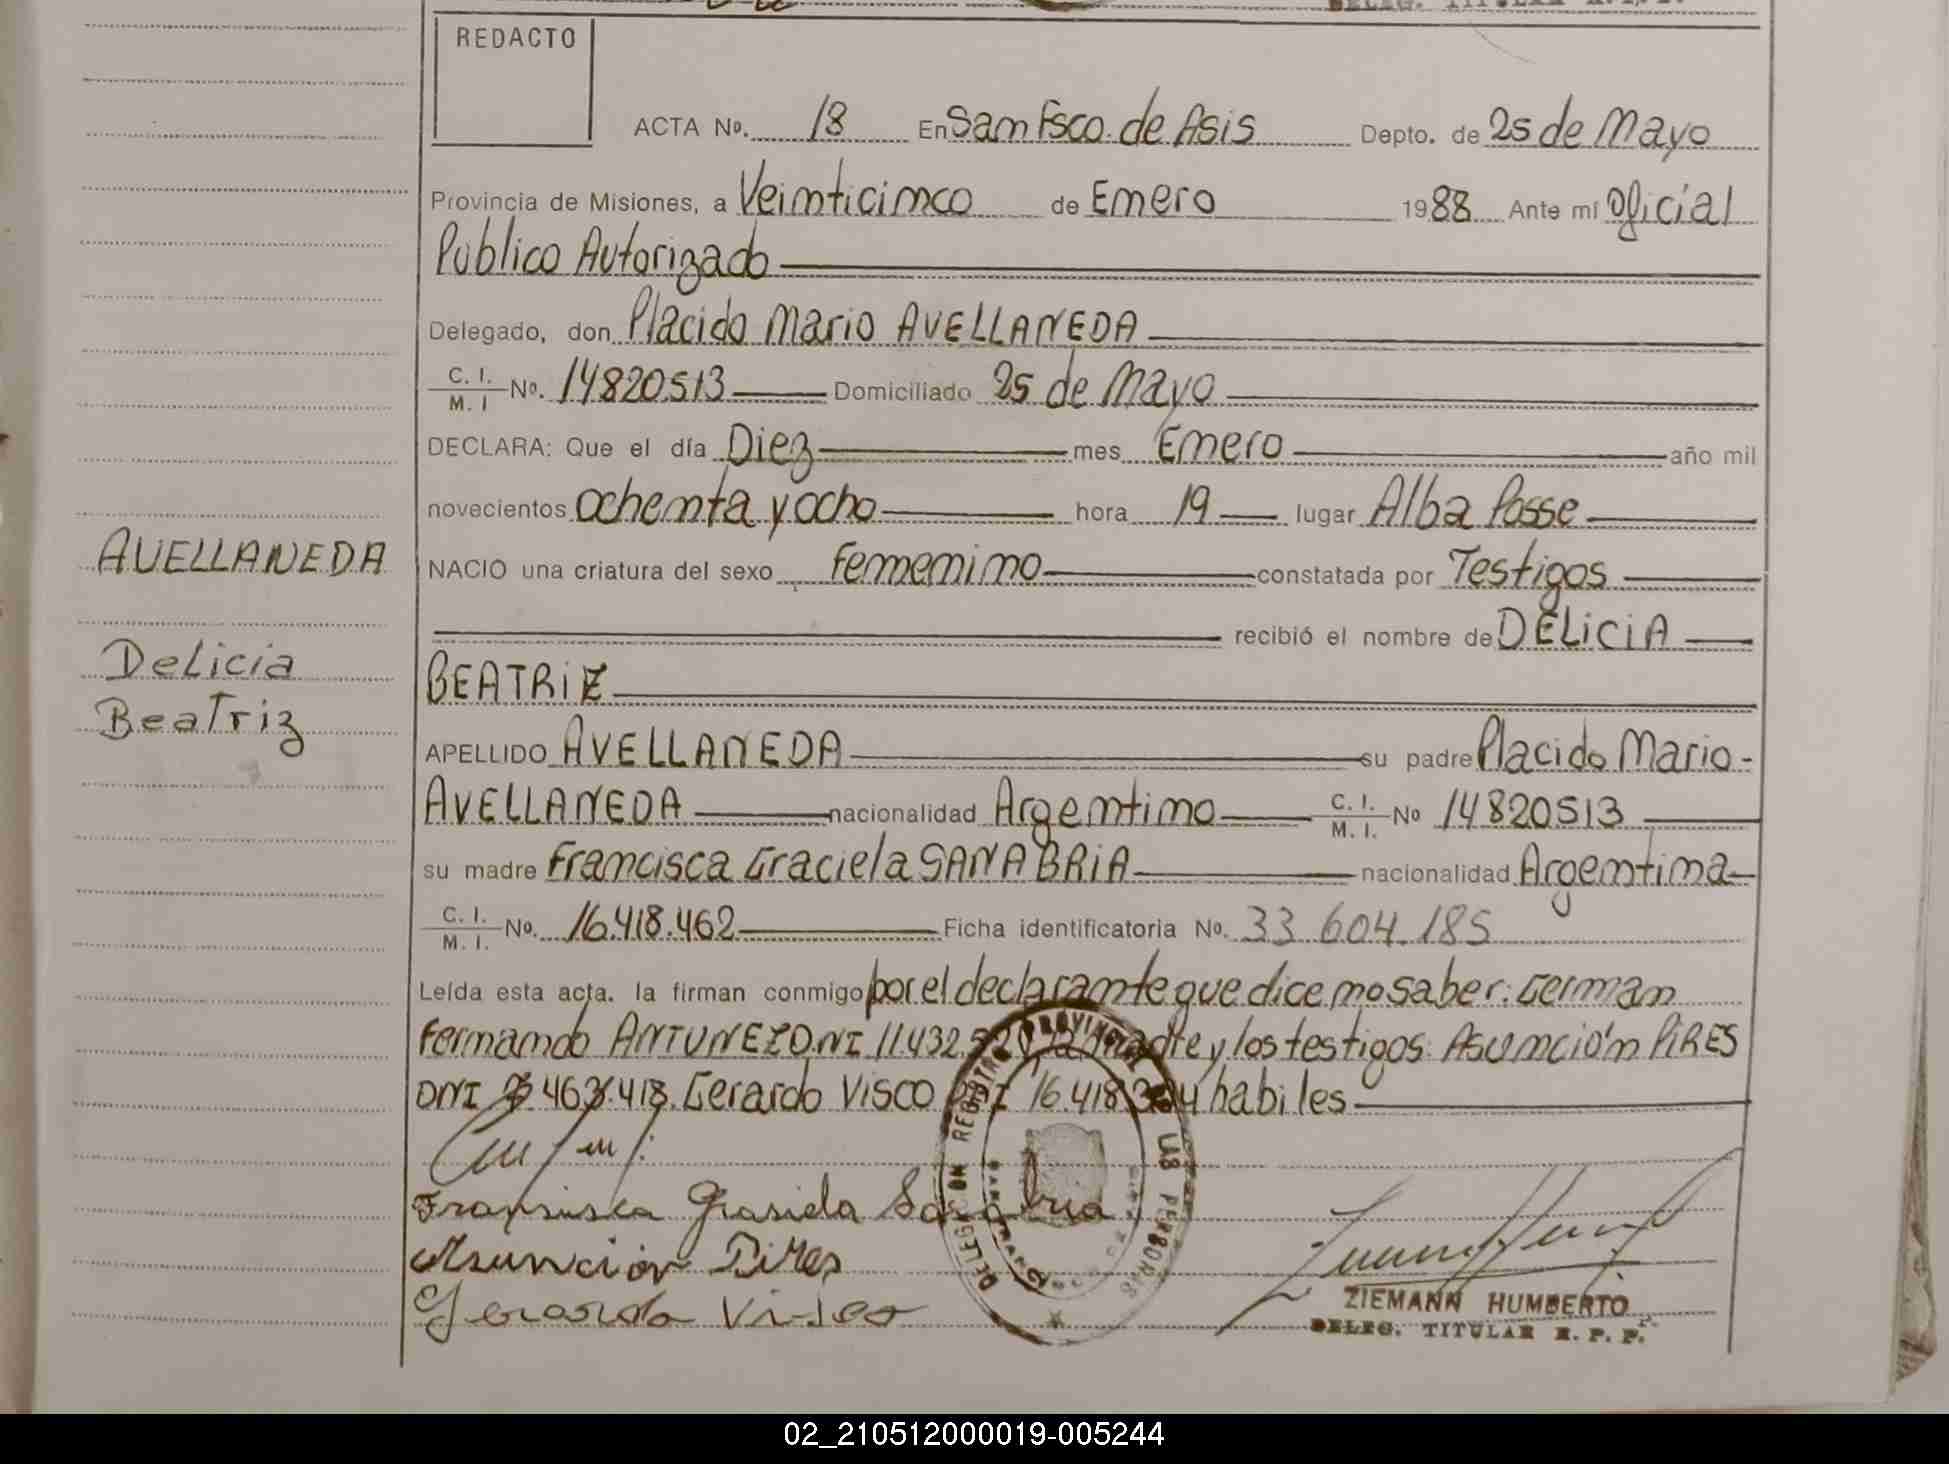 DELEG. TITULAR R. P. P.
REDACTO
ACTA Nº. 18 En San Fsco. de Asis Depto. de 25 de Mayo
Provincia de Misiones, a Veinticinco de Enero 1988 Ante mí Oficial
Publico Autorizado
Delegado, don Placido Mario AVELLANEDA
C. I. M. I Nº. 14820513 Domiciliado 25 de Mayo
DECLARA: Que el día Diez mes Enero año mil
novecientos ochenta y ocho hora 19 lugar Alba Posse
AVELLANEDA
NACIO una criatura del sexo Femenino constatada por Testigos
recibió el nombre de DELICIA
Delicia
BEATRIZ
Beatriz
APELLIDO AVELLANEDA su padre Placido Mario -
AVELLANEDA nacionalidad Argentino C. I. M. I. Nº 14820513
su madre Francisca Graciela SANABRIA nacionalidad Argentina
C. I. M. I. Nº. 16.418.462 Ficha identificatoria No. 33 604.185
Leída esta acta. la firman conmigo por el declarante que dice no saber: German
Fernando ANTUNEZ DNI la madre y los testigos: Asunción PIRES
DNI Gerardo VISCO DNI habiles
Fransisca Grasiela Sanabria
Asunción Pires
Gerardo Visco
DELEGACION REGISTRO PROVINCIAL DE LAS PERSONAS
ZIEMANN HUMBERTO
DELEG. TITULAR R. P. P.
02_210512000019-005244